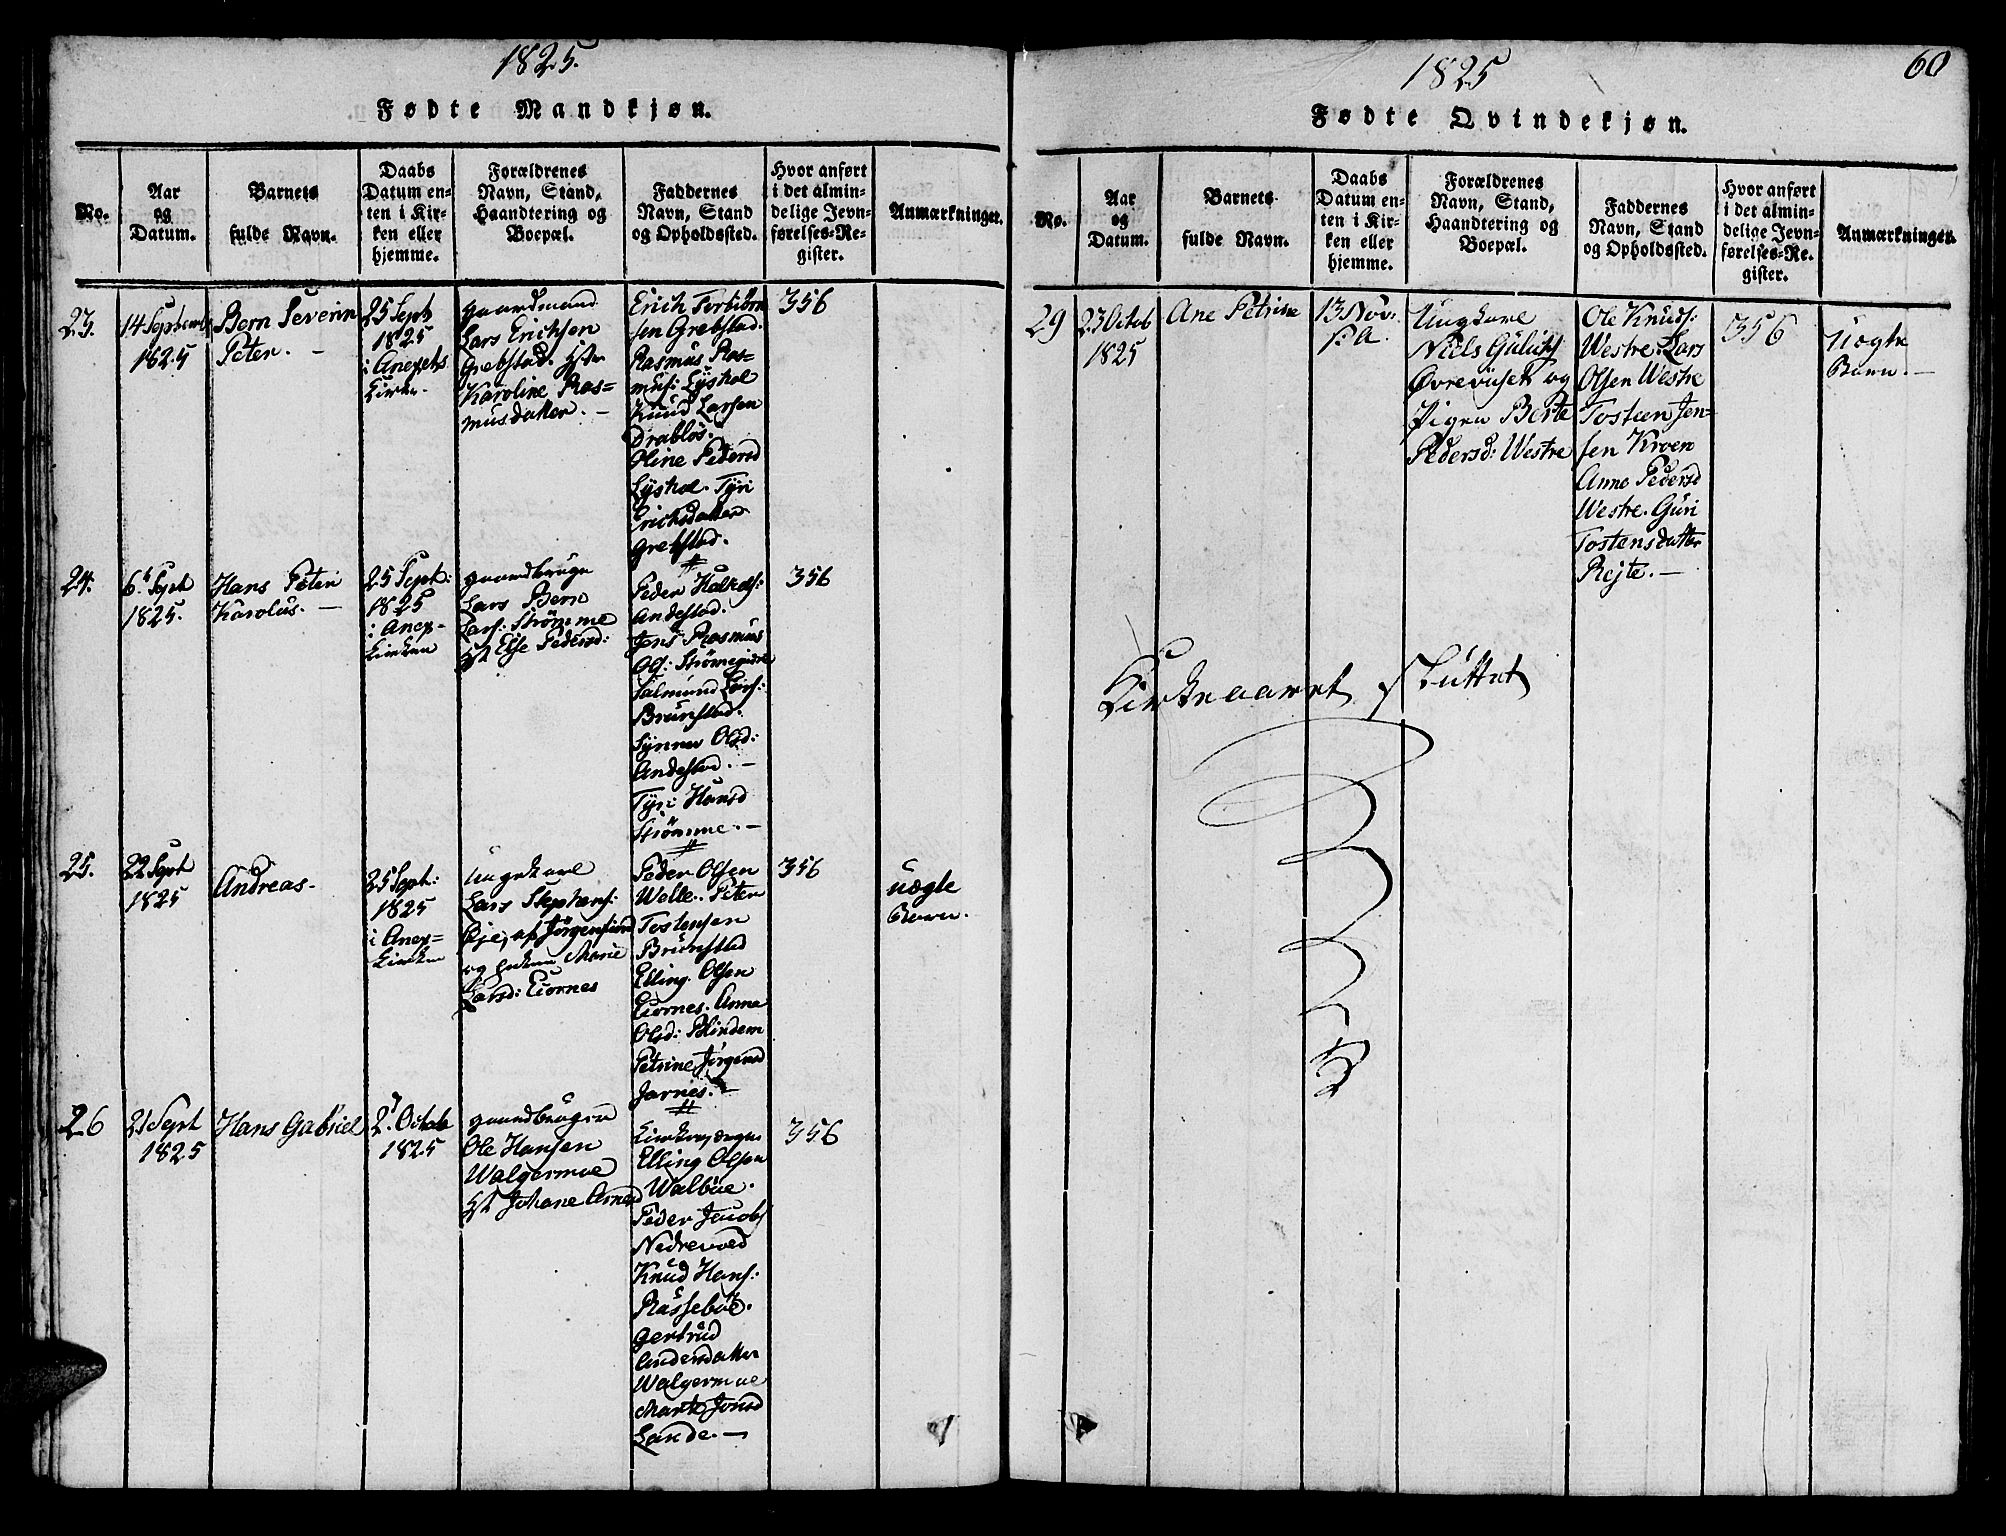 1825.
Fødte Mandkjøn.
No.
Aar
og
Datum.
Barnets
fulde Navn.
Daabs
Datum en-
ten i Kir-
ken eller
hjemme.
Forældrenes
Navn, Stand,
Haandtering og
Boepæl.
Faddernes
Navn, Stand
og Opholdssted.
Hvor anført
i det almin-
delige Jevn-
førelses-Re-
gister.
Anmærkninger.
23.
14 Septembr
1825
Bern Severin
Peter. —
25 Sept
1825
i Anexets
Kirke.
gaardmand
Lars Erichsen
Grebstad. Hstr
Karoline Ras=
musdatter. —
Erich Torbiørn
sen Grebstad.
Rasmus Ras=
mus: Lyshol
Knud Larsen
Drabløs.
Oline Pedersd
Lyshol. Tyri
Erichsdatter
Grebstad.
356
24.
6t Sept
1825.
Hans Peter
Karolus. —
25 Sept:
1825
i Anex-
Kirken
gaardbruger
Lars Bern
Lars: Strømme
Hst Else Pedersd:
Peder
Andestad.
Jens Rasmus
Ols: Strømegjerde
Salmund Lars:
Brunstad.
Synnev Olsd:
Andestad. —
Tyri Hansd
Strømme. —
356
25.
22 Sept
1825
Andreas.
25 Sept:
1825
i Anex=
Kirken
Ungekarl
Lars Stephens:
Eje, af Jørgenfiord
og Marie
Larsd: Tiornes
Peder Olsen
Welle. Peter
Tostensen
Brunstad
Elling Olsen
Tiornes. Anna
Olsd: Blindem
Petrine Jørgensd
Jarnes. —
356
uægte
Barn.
26
21 Sept
1825
Hans Gabriel
2. Octob
1825
gaardbruger
Ole Hansen
Walgermoe
Hst Johane Arnesd
Kirkeværge
Elling Olsen
Walbøe.
Peder Jacobs
Nedrevold
Knud Hans:
Ræssebøe.
Gertrud
Andersdatter
Walgermoe
Marte Jonsd
Lande. —
356
1825
60
Fødte Qvindekjøn.
No.
Aar
og
Datum.
Barnets
fulde Navn.
Daabs
Datum en-
ten i Kir-
ken eller
hjemme.
Forældrenes
Navn, Stand,
Haandtering og
Boepæl.
Faddernes
Navn, Stand
og Opholdssted.
Hvor anført
i det almin-
delige Jevn-
førelses-Re-
gister.
Anmærkninger.
29
23 Octob
1825
Ane Petrine
13 Nov:
s: A.
Ungkarl
Niels Guluks
Øvrevuset og
Pigen Berte
Pedersd: Westre
Ole Knuds:
Westre. Lars
Olsen Westre
Tosteen Jen=
sen Kroen
Anne Pedersd
Westre. Guri
Tostensdatter
Rejte. —
356
Uægte
Barn. —
Kirkeaaret sluttet